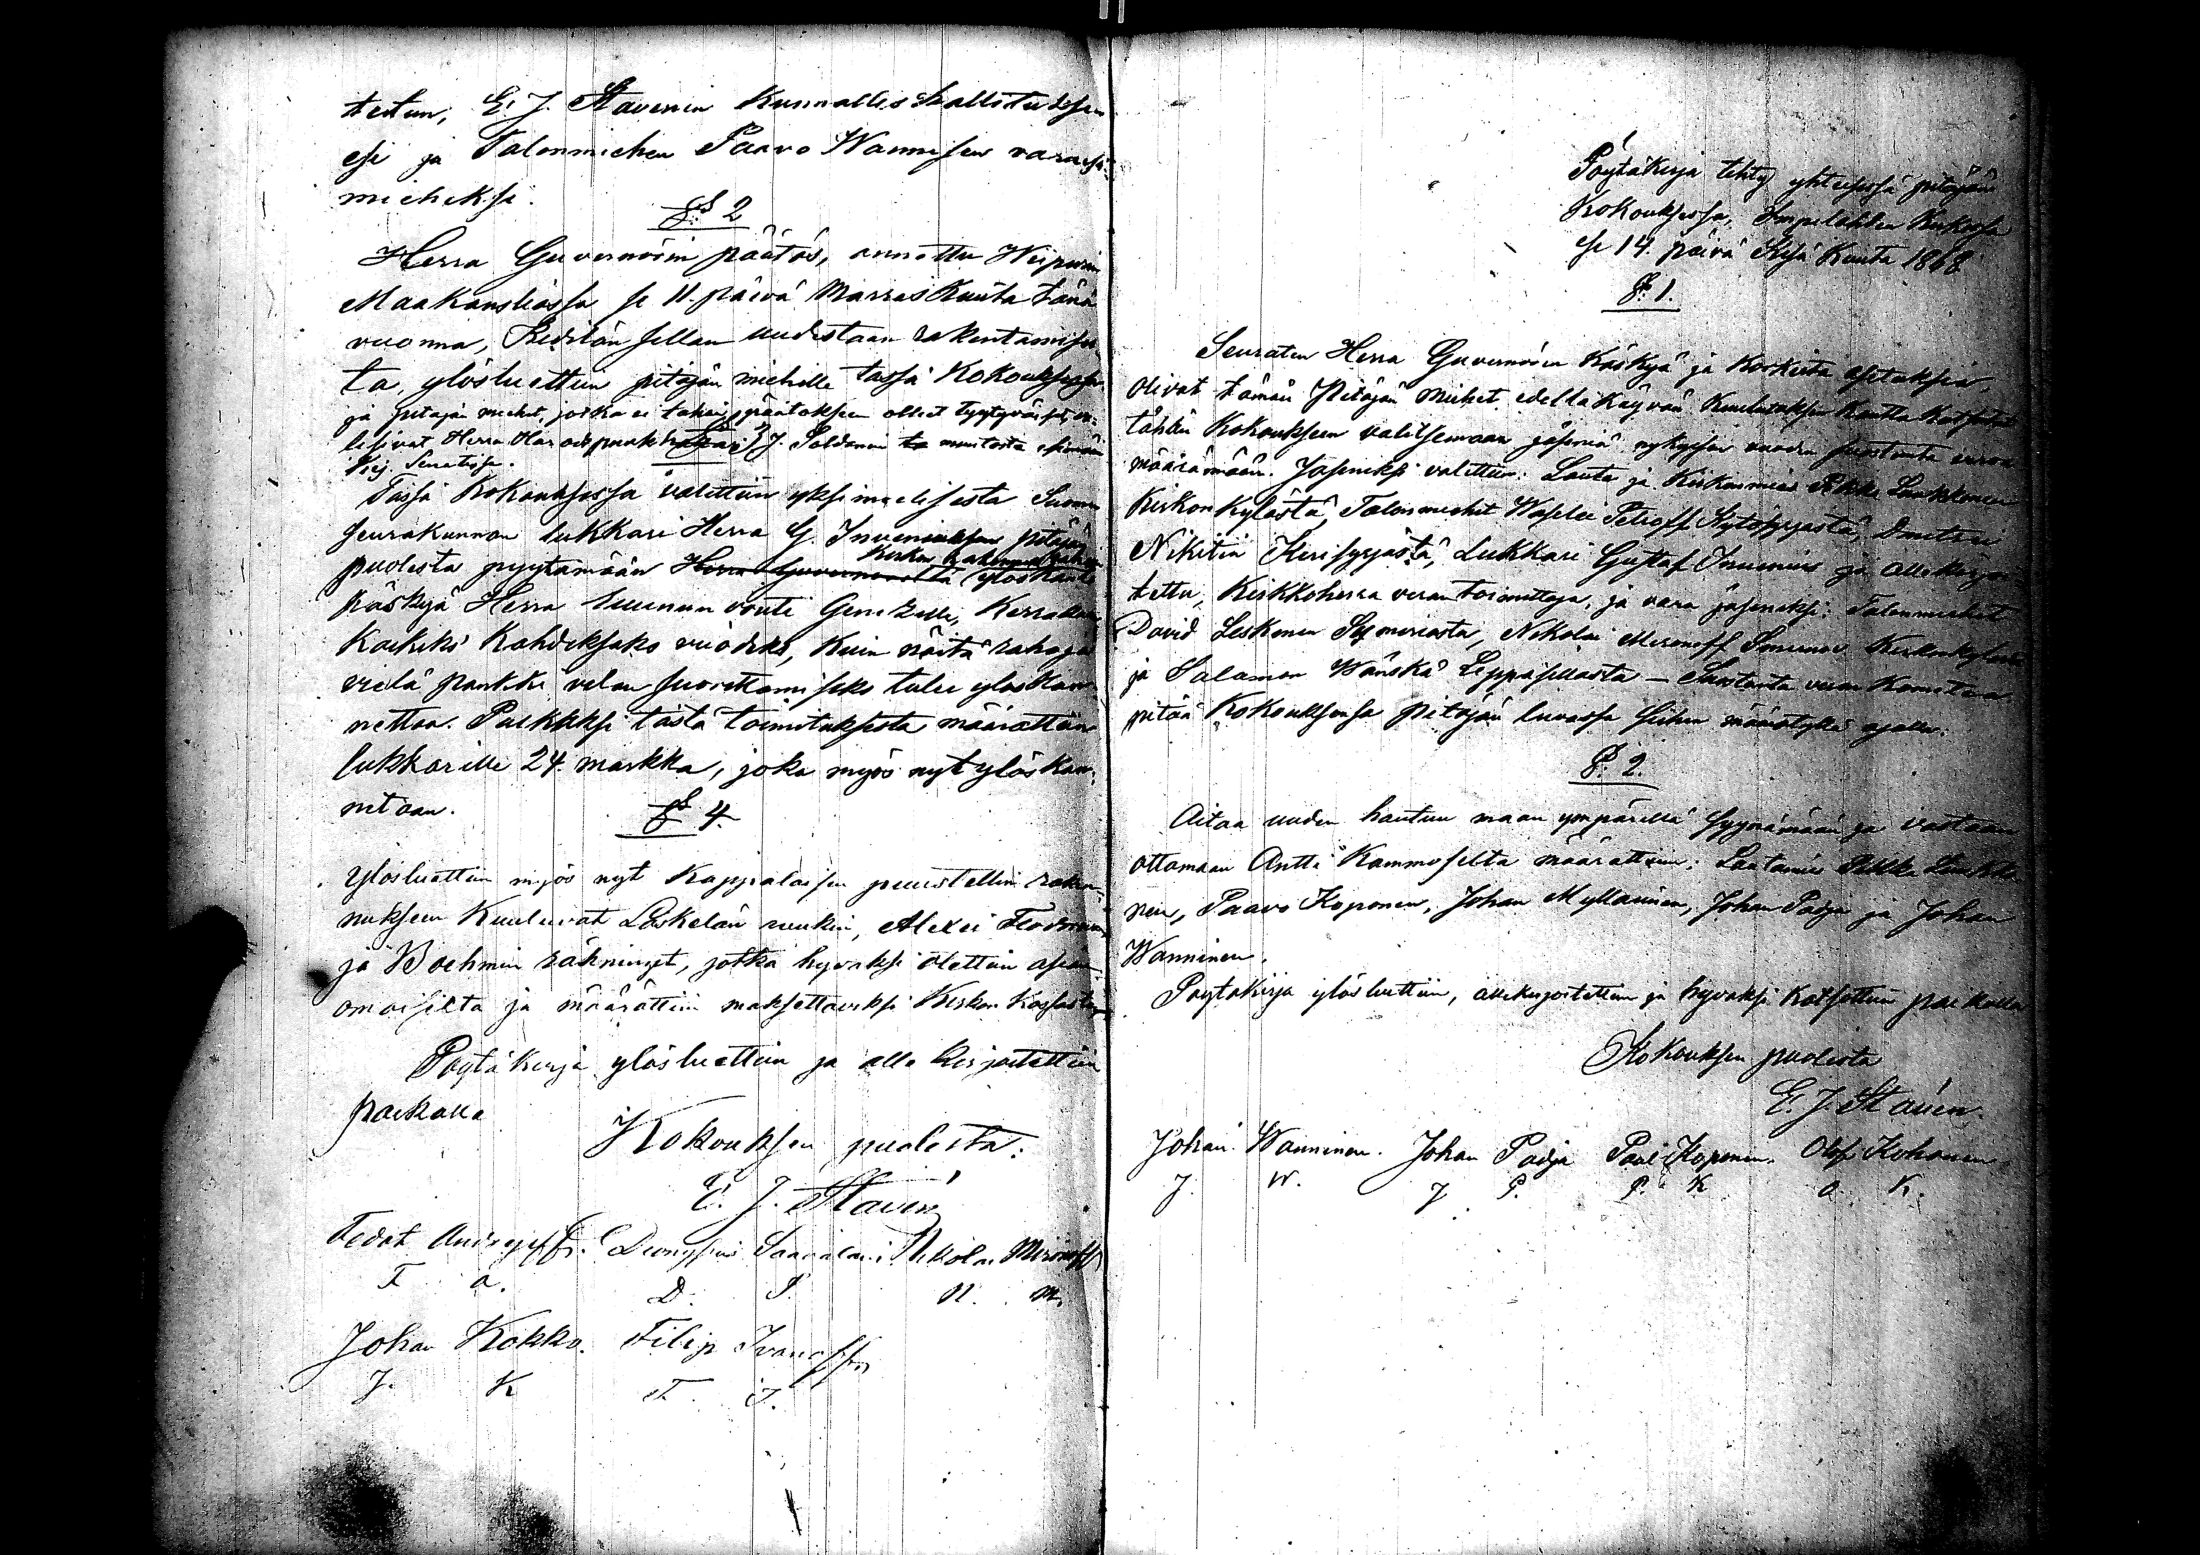 tettun, E. J. Stavenin Kunnallis hallituksen
esi ja Talonmiehen Paavo Wannisen vara esi
mieheksi.
§ 2
Herra Guvernöörin päätös, annettu Wiipurin
Maakansliassa se 11. päivä Marras Kuuta tänä
vuonna, sillan uudestaan rakentamises
ta, ylösluettiin pitäjän miehille tässä Kokouksessa
ja pitäjän miehet, jotka ei tähän päätökseen olleet tyytyväiset, va
litsivat Herra J. Soldanin muutosta
Keij. Senatissa.
Tässä Kokouksessa valittiin yksimielisesti Suomen
seurakunnan lukkari Herra G. Inveniuksen pitäjän
puolesta pyytämään Herra Guvernöriltä ylöskanto
käskyä Herra kruunun vouti Kerrallen
Kaikiks Kahdeksaks vuodeks, Kuin näitä rahoja
vielä pankki velan suorittamiseks tulee ylöskan
nettaa. Palkkiksi tästä toimituksesta määrättiin
lukkarille 24. markka, joka myös nyt ylöskan-
netaan.
§ 4.
Ylösluettiin myös nyt Kappalaisen puustellin raken-
nukseen Kuuluvat Läskelän ruukin, Alexei
ja Boehmin räkningit, jotka hyväksi otettiin asian
omaisilta ja määrättiin maksettavaksi Kirkon Kassasta
Pöytäkirja ylösluettiin ja alle kirjoitettiin
paikalla
Kokouksen puolesta:
E. J. Stavén
Fedot Andrejeff. Saavalaini Nikolai Mironoff
F. A. D. S. N. M.
Johan Kokko. Filip Ivanoff
J. K F. I.
Pöytäkirja tehty yhteisessä pitäjän
Kokouksessa, Impilahden Kirkossa
se 14. päivä Kesä Kuuta 1868
§. 1.
Seuraten Herra Guvernöörin Käskyä ja Korkeita asetuksia
olivat tämän Pitäjän miehet edellä käyvän Kuulutuksen Kautta Kutsutut
tähän Kokoukseen valitsemaan jäseniä nykyisen vuoden suostunta veroa
määrämään. Jäseniksi valittiin: Lauta ja Kirkonmies Pekka Laukkanen
Kirkon Kylästä, Talonmiehet Wasilei Petroff Sytösyrjästä, Dmitrei
Nikitin Kirisyrjästä, Lukkari Gustaf Invenius ja allekirjoi
tettu, Kirkkoherra viran toimittaja, ja vara jäseneksi: Talonmiehet
David Leskonen Nikolai Mironoff Kirkonkylästä
ja Salomon Wänskä Leppäsillasta – Suostunta veron Komitea
pitää Kokouksensa Pitäjän tuvassa siihen määrätyllä ajalla.
§. 2.
Aitaa uuden hautuu maan ympärillä syynämään ja vastaan
ottamaan Antti Kammoselta määrättiin: Lautamies Pekka Laukka
nen, Paavo Koponen, Johan Myllärinen, Johan Padja ja Johan
Wanninen.
Pöytäkirja ylösluettiin, allekirjoitettiin ja hyväksi Katsottiin paikalla
Kokouksen puolesta
E. J. Stavén.
Johan Wanninen. Johan Padja Paul Koponen. Olof Kohonen.
J. W. J P. P. K O. K.